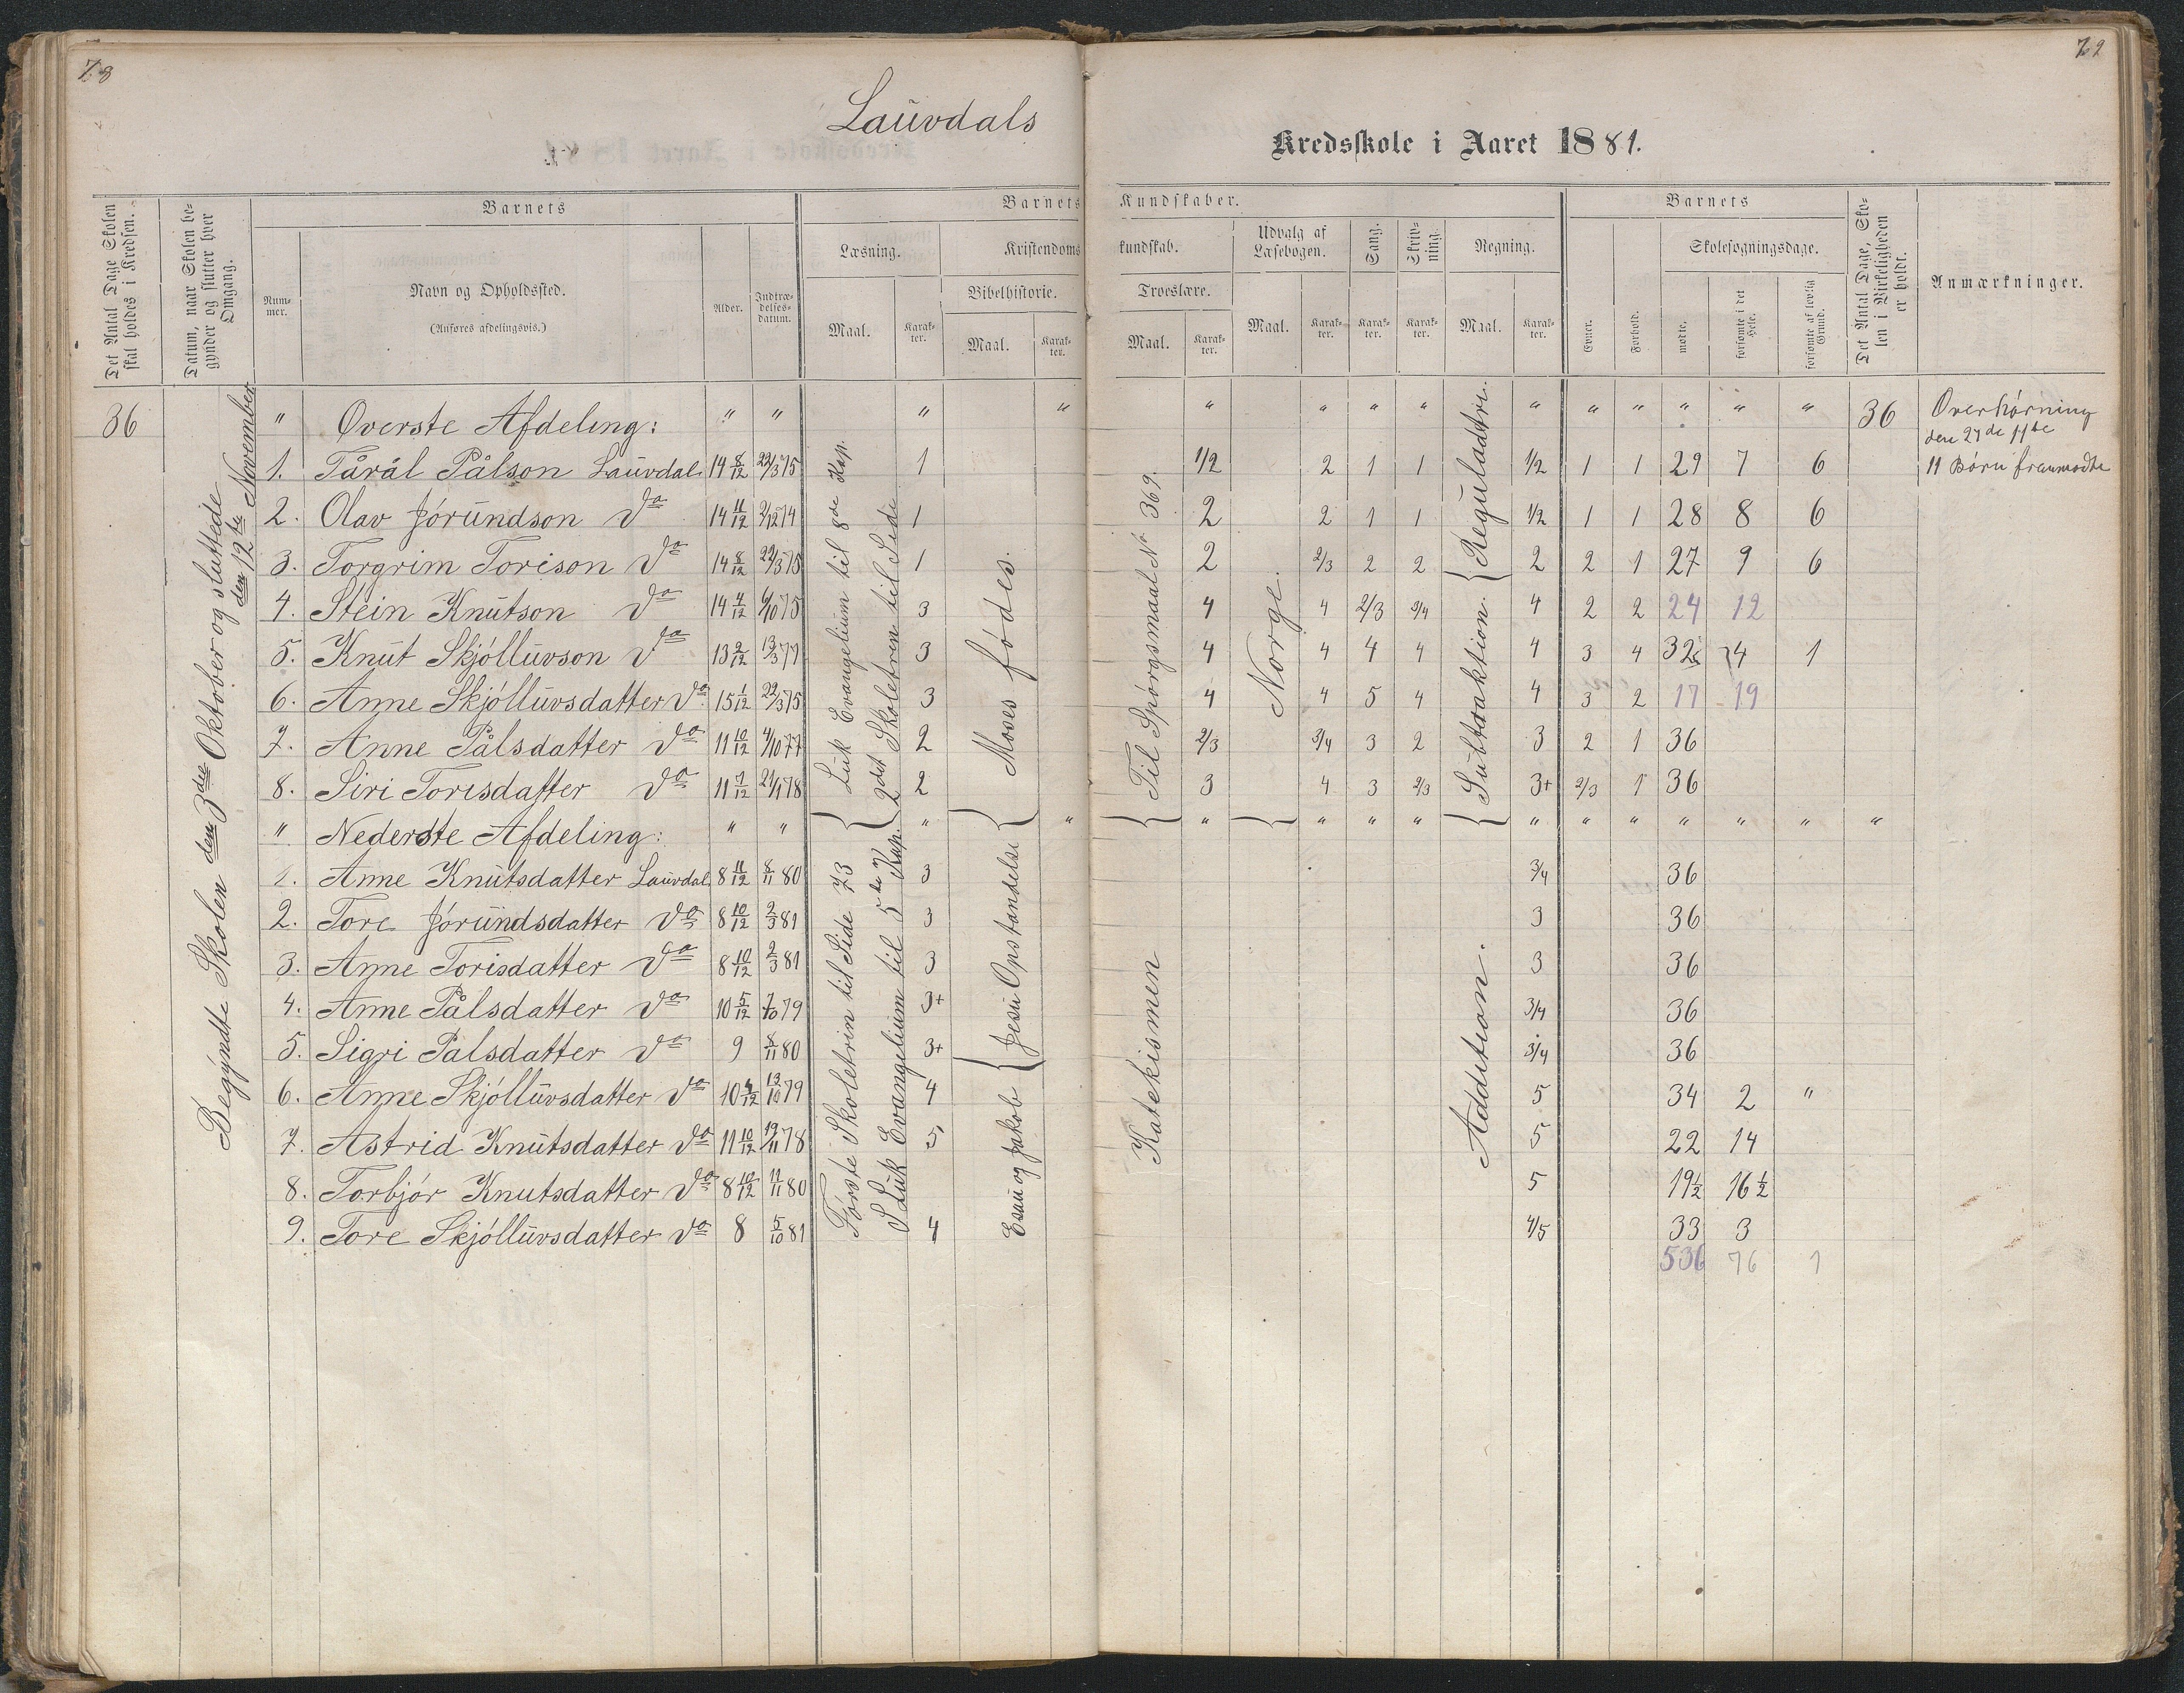 78
79
Lauvdals
Kredsskole i Aaret 1881.
Det Antal Dage Skolen skal holdes i Kredsen.
Datum, naar Skolen begynder og slutter hver Omgang.
Barnets
Nummer.
Navn og Opholdssted.
(Anføres afdelingsvis.)
Alder.
Indtrædelsesdatum.
Barnets Kundskaber.
Læsning.
Maal.
Karakter.
Kristendomskundskab.
Bibelhistorie.
Maal.
Karakter.
Troeslære.
Maal.
Karakter.
Udvalg af Læsebogen.
Maal.
Karakter.
Sang.
Karakter.
Skrivning.
Karakter.
Regning.
Maal.
Karakter.
Barnets
Evner.
Forhold.
Skolesøgningsdage.
mødte.
forsømte i det Hele.
forsømte af lovlig Grund.
Det Antal Dage, Skolen i Virkeligheden er holdt.
Anmærkninger.
Begyndte Skolen den 3die Oktober og sluttede den 12te November
Luk Evangelium til 8de Kap.
2det Skoletren til Side
Moses fødes.
Til Spørgsmaal No 369.
Norge.
Subtraktion. Reguladetri.
Første Skoletrin til Side 73
S Luk Evangelium til 5te Kap.
Esau og Jakob Jesu Opstandelse
Katekismen
Addition.
36 " Øverste Afdeling: " " " " " " " " " " " " " " 36 Overhørning
den 27de 11te
1. Tårål Pålson Lauvdal 14 8/12 22/3 75 1 1/2 2 1 1 1/2 1 1 29 7 6 11 Børn fremmødte
2. Olav Jórundson do 14 11/12 2/12 74 1 2 2 1 1 1/2 1 1 28 8 6
3. Torgrim Torison do 14 8/12 22/3 75 1 2 2/3 2 2 2 2 1 27 9 6
4. Stein Knutson do 14 4/12 6/10 75 3 4 4 2/3 3/4 4 2 2 24 12
5. Knut Skjólluvson do 13 2/12 13/3 77 3 4 4 4 4 4 3 4 32 4 1
6. Anne Skjólluvsdatter do 15 1/12 22/3 75 3 4 4 5 4 4 3 2 17 19
7. Anne Pålsdatter do 11 10/12 4/10 77 2 2/3 3/4 3 2 3 2 1 36
8. Siri Torisdatter do 11 7/12 21/1 78 2 3 4 3 2/3 3+ 2/3 1 36
" Nederste Afdeling: " " " " " " " " " " " " " " "
1. Anne Knutsdatter Lauvdal 8 11/12 8/11 80 3 3/4 36
2. Tore Jórundsdatter do 8 10/12 2/3 81 3 3 36
3. Anne Torisdatter do 8 10/12 2/3 81 3 3 36
4. Anne Pålsdatter do 10 5/12 7/10 79 3+ 3/4 36
5. Sigri Palsdatter do 9 8/11 80 3+ 3/4 36
6. Anne Skjólluvsdatter do 10 4/12 13/10 79 4 5 34 2 "
7. Astrid Knutsdatter do 11 10/12 19/11 78 5 5 22 14
8. Torbjór Knutsdatter do 8 10/12 11/11 80 5 19½ 16½
9. Tore Skjólluvsdatter do 8 5/10 81 4 4/5 33 3
536 76 1